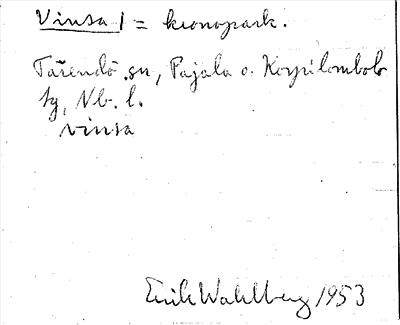 Vinsa 1 = kronopark.
Tärendö sn, Pajala o. Korpilombolo
tg, Nb. l.
vinsa
Erik Wahlberg 1953